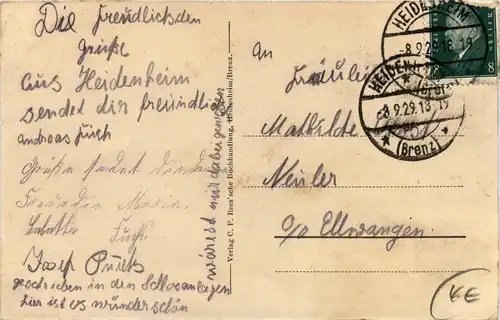 Die freudlichsden
Grüße
aus Heidenheim
sendet dir freundlich
andreas
Grüße sendet
Freundin Maria
Babettle
Josef
geschrieben in den Schlosanlagen
hier ist es wunderschön
wärest nur dabei gewesen
Verlag C. F. Rees'sche Buchhandlung, Heidenheim/Brenz.
HEIDENHEIM
-8.9.29.18-19
(Brenz)
8
An
Fräulein
Mathilde
Neuler
c/o Ellwangen